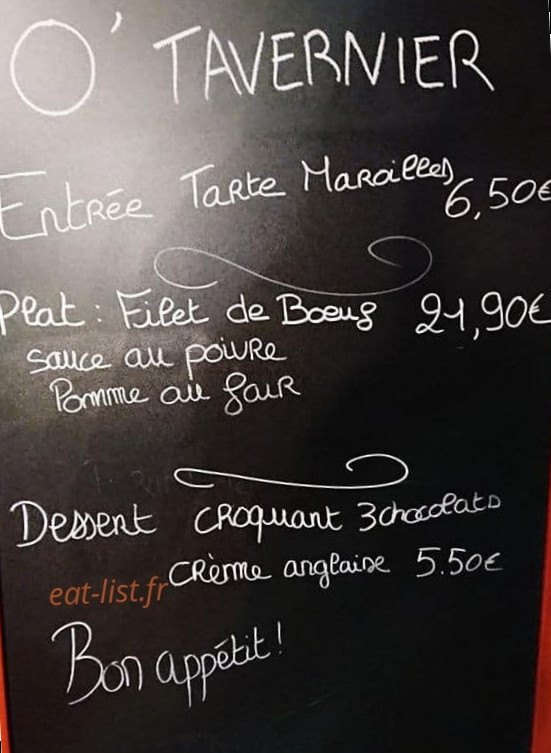 O' TAVERNIER
Entrée Tarte Maroilles 6,50€
Plat : Filet de Boeuf 21,90€
sauce au poivre
Pomme au four
Dessert croquant 3chocolats
crème anglaise 5.50€
eat-list.fr
Bon appétit !